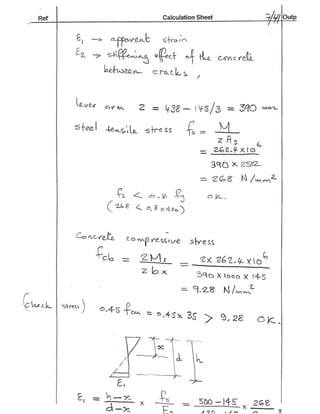 Ref Calculation Sheet 7/41 Outp
ε₁ → apparent strain
ε₂ → stiffening effect of the concrete
between cracks,
Lever arm z = 438 - 145/3 = 390 mm
Steel tensile stress fs = M / z As
= 262.4 x 10⁶ / 390 x 2512
= 268 N/mm²
fs < 0.8 fy OK.
(268 < 0.8 x 420)
Concrete compressive stress
fcb = 2Ms / z b x = 2x 262.4 x 10⁶ / 390 x 1000 x 145
= 9.28 N/mm²
(Check stress) 0.45 fcu = 0.45x 35 > 9.28 OK.
x d h
ε₁
ε₁ = h-x / d-x x fs / Es = 500-145 x 268